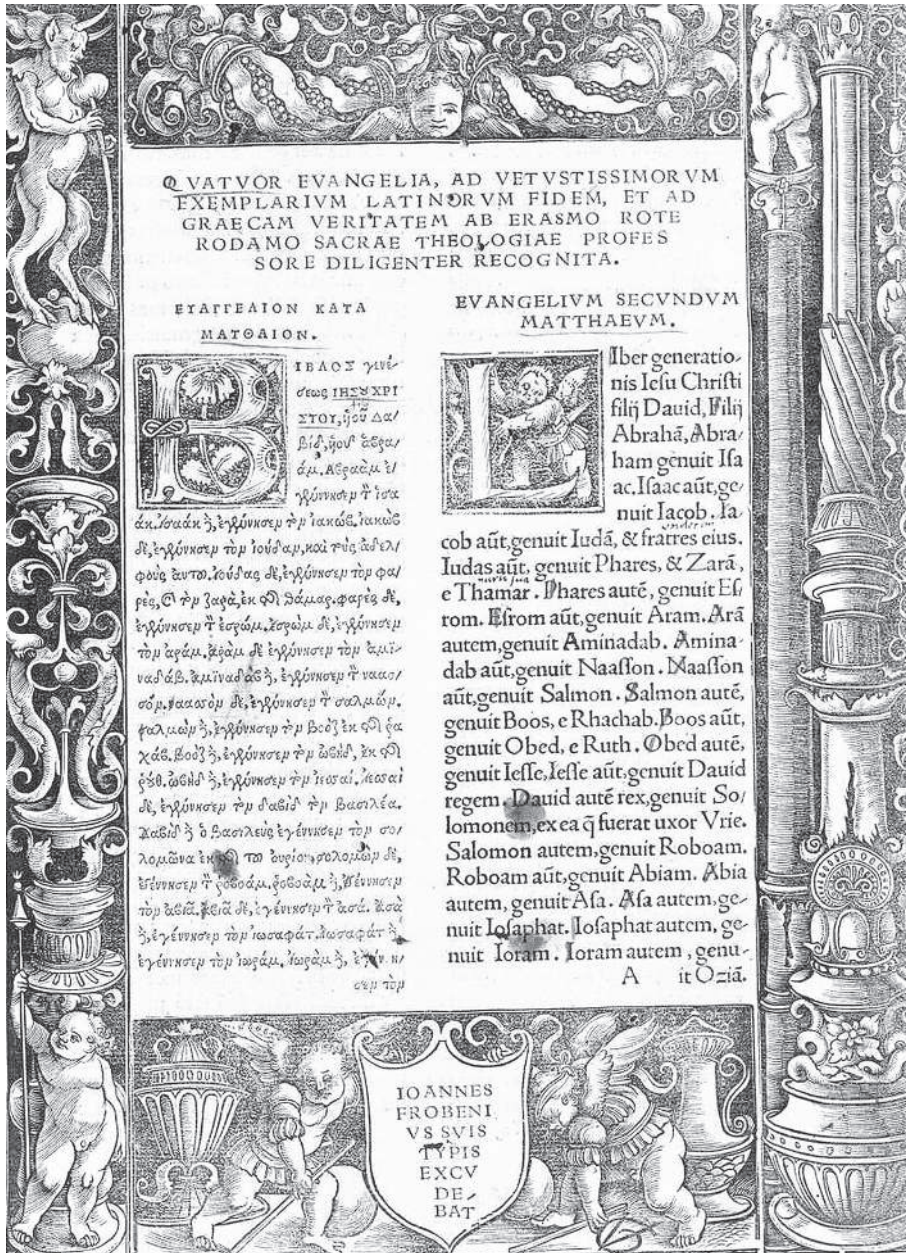 QVATVOR EVANGELIA, AD VETVSTISSIMORVM
EXEMPLARIVM LATINORVM FIDEM, ET AD
GRAECAM VERITATEM AB ERASMO ROTE
RODAMO SACRAE THEOLOGIAE PROFES
SORE DILIGENTER RECOGNITA.
ΕΥΑΓΓΕΛΙΟΝ ΚΑΤΑ
ΜΑΤΘΑΙΟΝ.
ΒΙΒΛΟΣ γενέ-
σεως ΙΗΣΟΥ ΧΡΙ
ΣΤΟΥ, ὑοῦ Δα/
βίδ, ὑοῦ ἀβρα/
άμ. Αβραὰμ ἐ/
γέννησεν τὸν ἰσα
άκ. ἰσαὰκ δὲ, ἐγέννησεν τὸν ἰακώβ. ἰακὼβ
δὲ, ἐγέννησεν τὸν ἰούδαν, καὶ τοὺς ἀδελ/
φοὺς αὐτοῦ. ἰούδας δὲ, ἐγέννησεν τὸν φα/
ρὲς, καὶ τὸν ζαρὰ, ἐκ τῆς θάμαρ. φαρὲς δὲ,
ἐγέννησεν τὸν ἐσρώμ. ἐσρὼμ δὲ, ἐγέννησεν
τὸν ἀράμ. ἀρὰμ δὲ ἐγέννησεν τὸν ἀμι/
ναδάβ. ἀμιναδὰβ δὲ, ἐγέννησεν τὸν ναασ/
σόν. ναασσὸν δὲ, ἐγέννησεν τὸν σαλμών.
σαλμὼν δὲ, ἐγέννησεν τὸν βοὸζ ἐκ τῆς ῥα
χάβ. βοὸζ δὲ, ἐγέννησεν τὸν ὠβὴδ, ἐκ τῆς
ῥούθ. ὠβὴδ δὲ, ἐγέννησεν τὸν ἰεσσαί. ἰεσσαὶ
δὲ, ἐγέννησεν τὸν δαβὶδ τὸν βασιλέα.
Δαβὶδ δὲ ὁ βασιλεὺς ἐγέννησεν τὸν σο/
λομῶνα ἐκ τῆς τοῦ οὐρίου. σολομὼν δὲ,
ἐγέννησεν τὸν ῥοβοάμ. ῥοβοὰμ δὲ, ἐγέννησεν
τὸν ἀβιά. ἀβιὰ δὲ, ἐγέννησεν τὸν ἀσά. ἀσὰ
δὲ, ἐγέννησεν τὸν ἰωσαφάτ. ἰωσαφὰτ δὲ
ἐγέννησεν τὸν ἰωράμ. ἰωρὰμ δὲ, ἐγέννη/
σεν τὸν
EVANGELIVM SECVNDVM
MATTHAEVM.
LIber generatio-
nis Iesu Christi
filij Dauid, Filij
Abrahā, Abra/
ham genuit Isa
ac. Isaac aūt, ge/
nuit Iacob. Ia/
cob aūt, genuit Iudā, & fratres eius.
Iudas aūt, genuit Phares, & Zarā,
e Thamar. Phares autē, genuit Es/
rom. Esrom aūt, genuit Aram. Arā
autem, genuit Aminadab. Amina/
dab aūt, genuit Naasson. Naasson
aūt, genuit Salmon. Salmon autē,
genuit Boos, e Rhachab. Boos aūt,
genuit Obed, e Ruth. Obed autē,
genuit Iesse, Iesse aūt, genuit Dauid
regem. Dauid autē rex, genuit So/
lomonem, ex ea q̄ fuerat uxor Vrie.
Salomon autem, genuit Roboam.
Roboam aūt, genuit Abiam. Abia
autem, genuit Asa. Asa autem, ge-
nuit Iosaphat. Iosaphat autem, ge-
nuit Ioram. Ioram autem, genu-
A it Oziā.
IOANNES
FROBENI
VS SVIS
TYPIS
EXCV
DE/
BAT